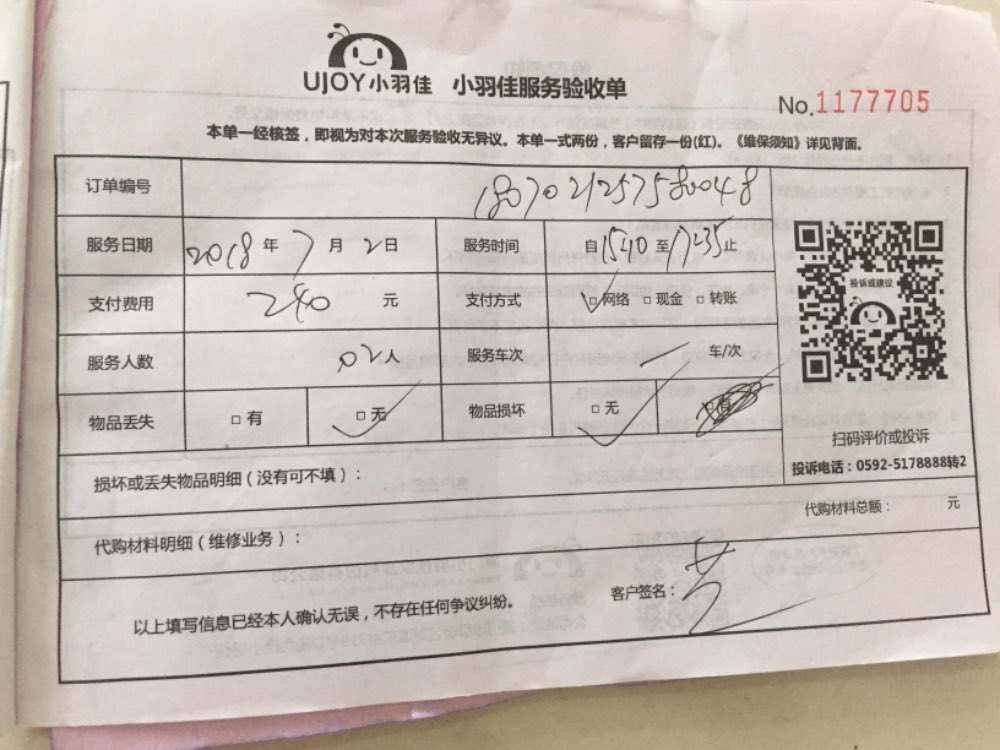 UJOY小羽佳 小羽佳服务验收单
No.1177705
本单一经核签，即视为对本次服务验收无异议。本单一式两份，客户留存一份(红)。《维保须知》详见背面。
订单编号 1807021257580048
服务日期 2018年7月2日 服务时间 自1540至1735止
支付费用 240 元 支付方式 □网络 □现金 □转账
服务人数 02人 服务车次 车/次
物品丢失 □有 □无 物品损坏 □无 □有
投诉或建议
扫码评价或投诉
投诉电话：0592-5178888转2
损坏或丢失物品明细（没有可不填）：
代购材料明细（维修业务）： 代购材料总额： 元
以上填写信息已经本人确认无误，不存在任何争议纠纷。 客户签名：